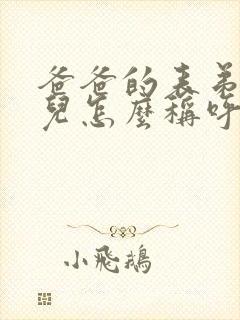 爸爸的表弟
兒怎麼稱呼
小飛鵝